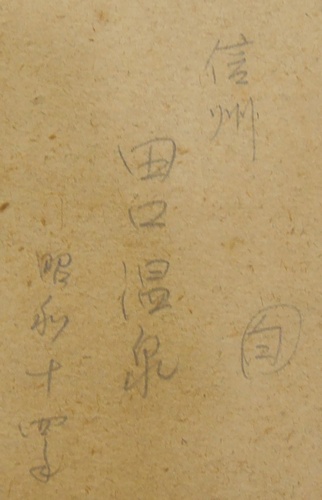 信州
田口温泉
昭和十四年
自